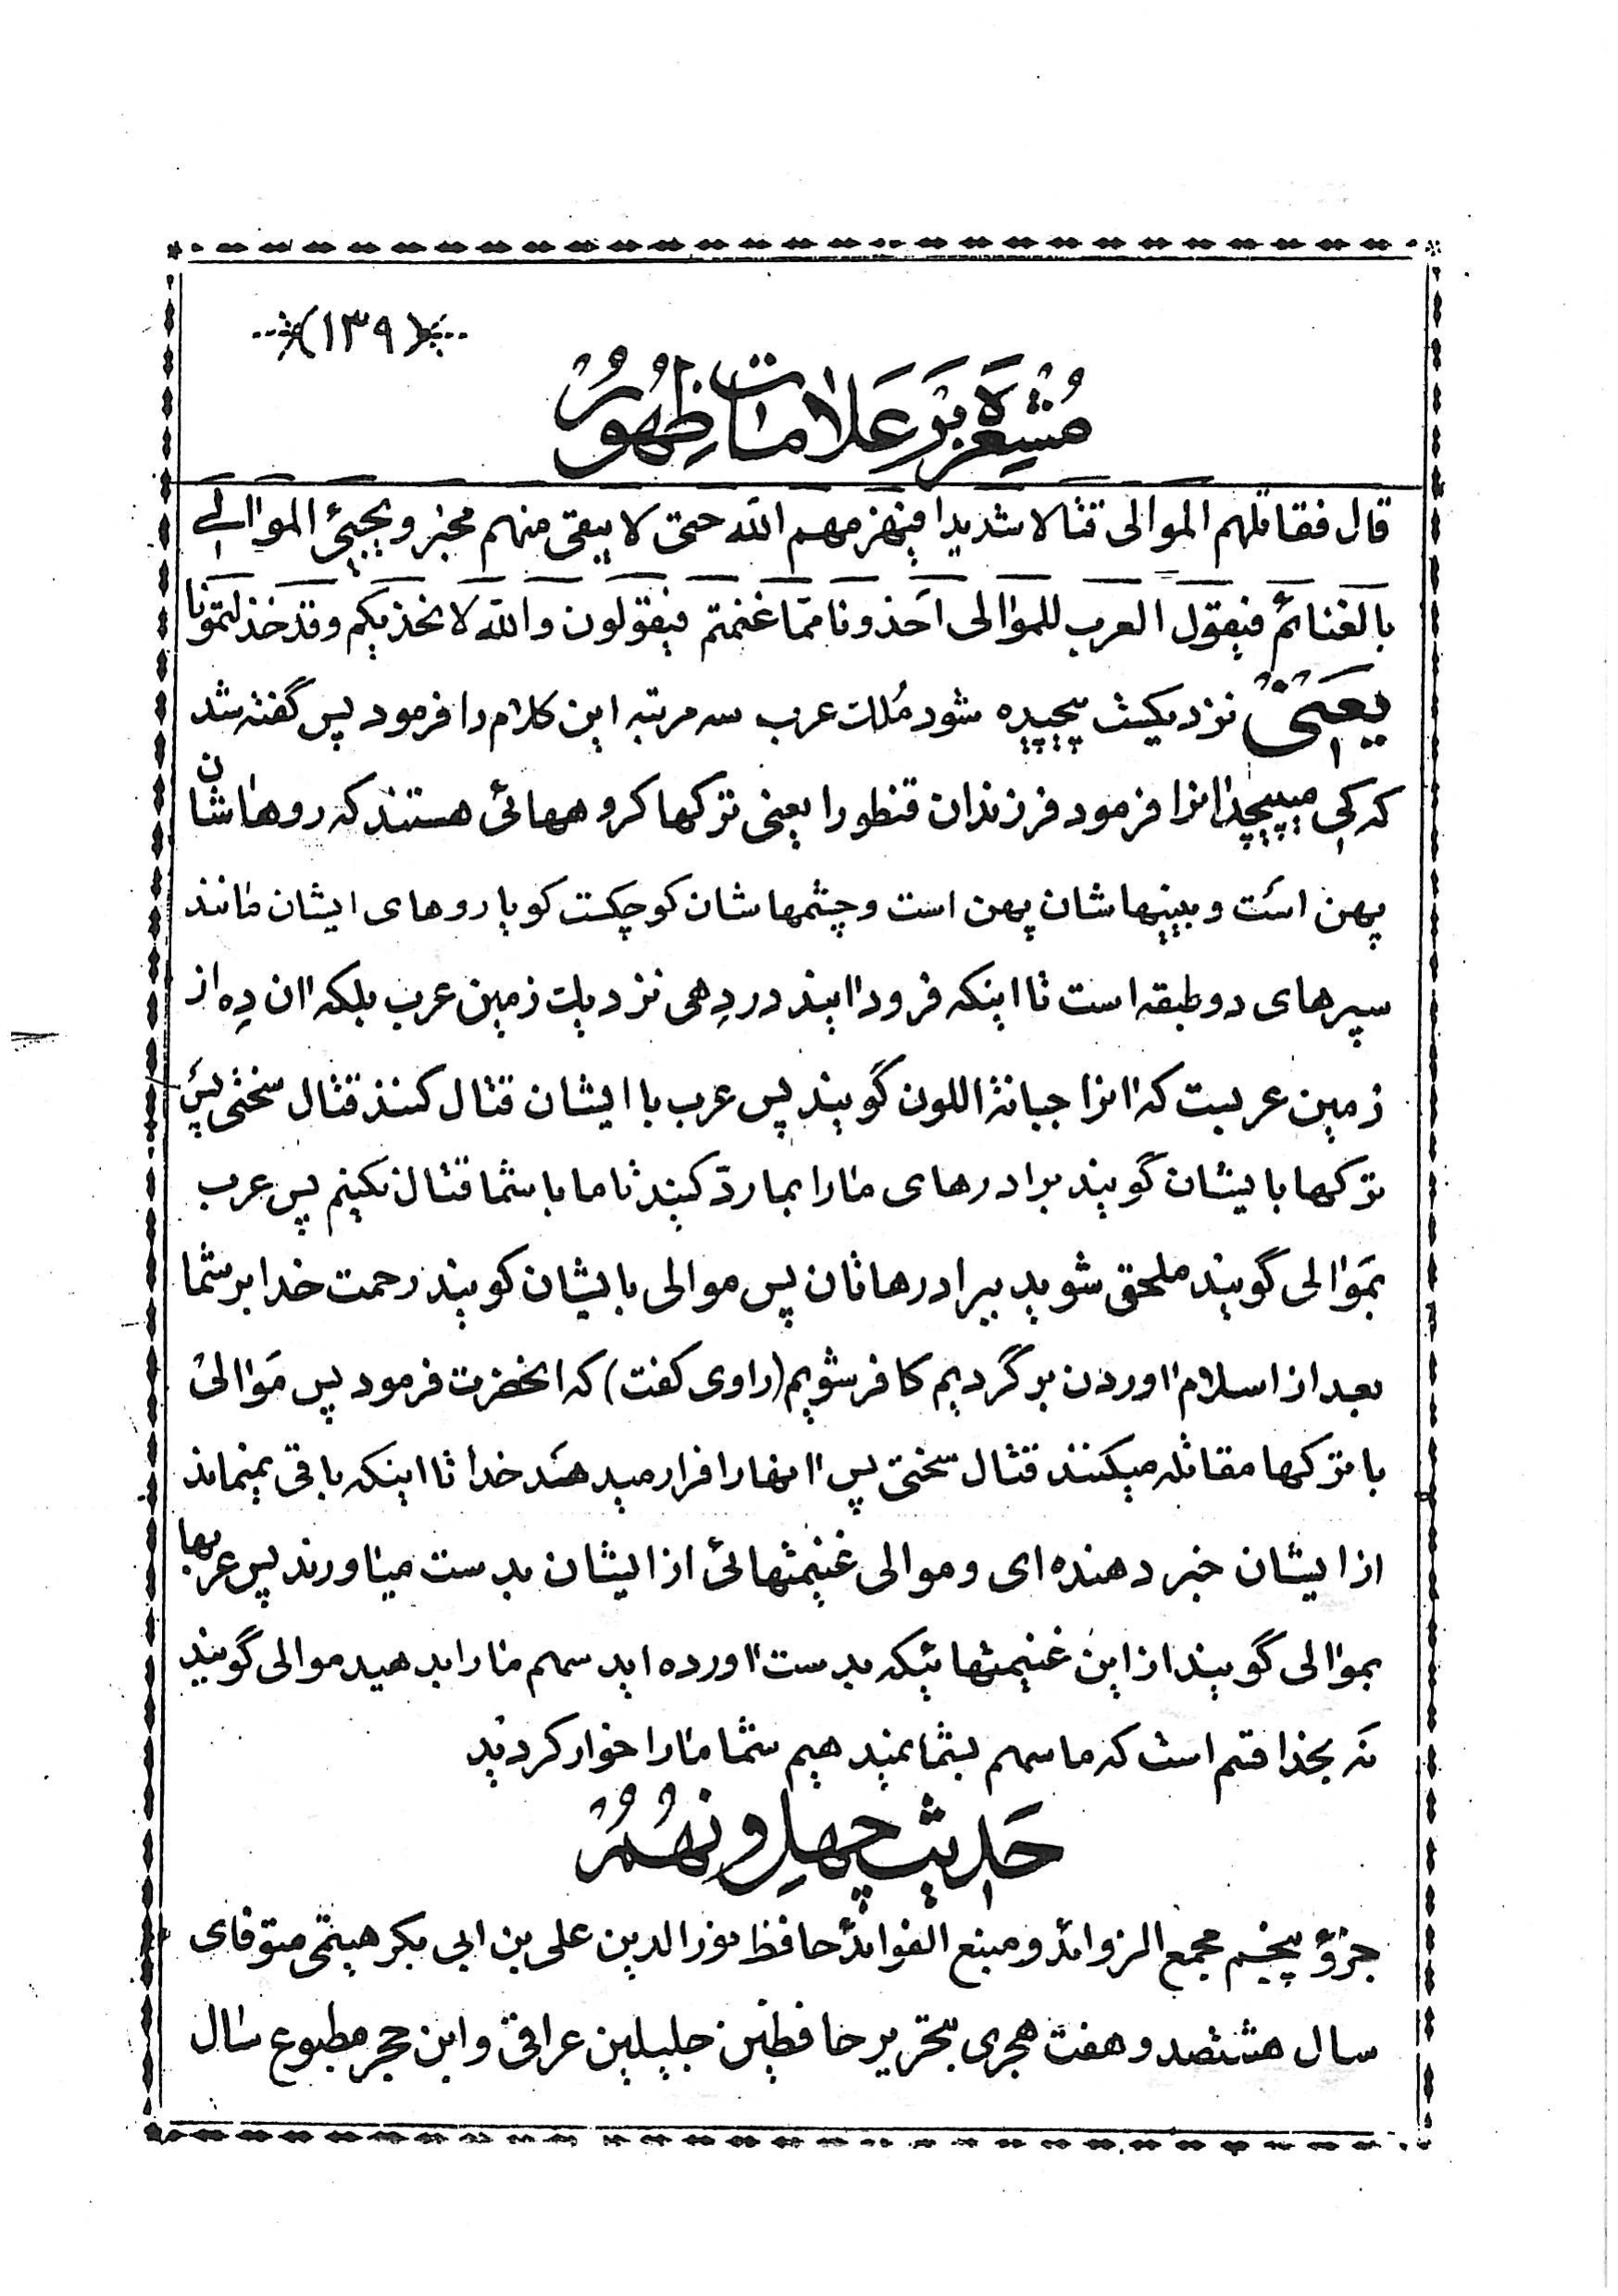 (۱۳۹)
مُشْعِرَهٔ بَر عَلامات ظُهُور
قال فقاتلهم الموالی قتالا شدیدا فینهزمهم الله حتی لا یبقی منهم مخبر و یجیئ الموالی
بالغنائم فیقول العرب للموالی آحذونا ممّا غنمتم فیقولون والله لا نحذیکم وقد خذلتمونا
یَعنی نزدیکیت پیچیده شود مُلک عرب سه مرتبه این کلام را فرمود پس گفته شد
که کی میپیچد انرا فرمود فرزندان قنطورا یعنی ترکها کروههائی هستند که روهاشان
پهن است و بینیهاشان پهن است و چشمهاشان کوچکست کویا روهای ایشان مانند
سپرهای دو طبقه است تا اینکه فرود ایند در دِهی نزدیک زمین عرب بلکه ان دِه از
زمین عربیت که انرا جبانة اللون گویند پس عرب با ایشان قتال کنند قتال سختی پس
ترکها بایشان گویند برادرهای ما را بما ردّ کنید تا ما با شما قتال نکنیم پس عرب
بموالی گویند ملحق شوید ببرادرهاتان پس موالی بایشان کویند رحمت خدا بر شما
بعد از اسلام اوردن برگردیم کافر شویم (راوی کفت) که انحضرت فرمود پس مَوالی
با ترکها مقاتله میکنند قتال سختی پس انها را فرار میدهند خدا تا اینکه باقی نمیماند
از ایشان خبر دهنده‌ای و موالی غنیمتهائی از ایشان بدست میاورند پس عربها
بموالی گویند از این غنیمتهائیکه بدست اورده اید سهم ما را بدهید موالی گویند
نه بخدا قسم است که ما سهم بشما نمیدهیم شما ما را خوار کردید
حَدیث چهل و نُهُم
جزؤ پنجم مجمع الزوائد و منبع الفوائد حافظ نور الدین علی بن ابی بکر هیتمی متوفای
سال هشتصد و هفت هجری بتحریر حافظین جلیلین عراقی و ابن حجر مطبوع سال